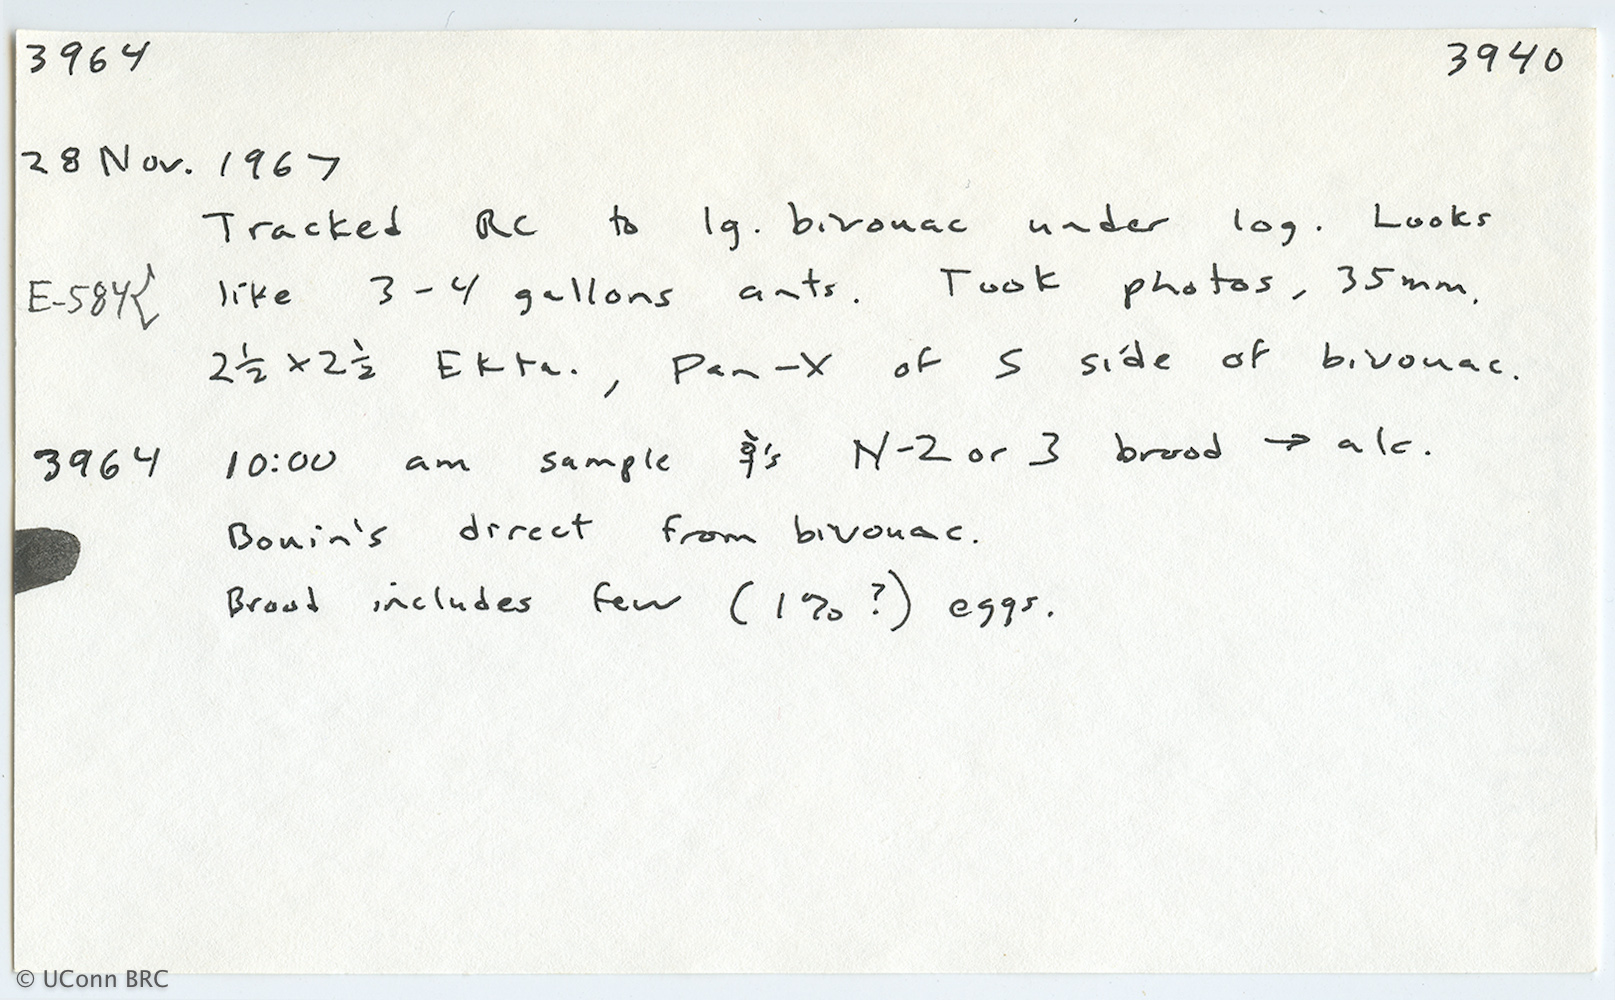 3964 3940
28 Nov. 1967
Tracked RC to lg. bivouac under log. Looks
E-584{ like 3-4 gallons ants. Took photos, 35mm,
2½ x 2½ Ekta., Pan-X of S side of bivouac.
3964 10:00 am sample ☿'s N-2 or 3 brood → alc.
Bouin's direct from bivouac.
Brood includes few (1% ?) eggs.
© UConn BRC